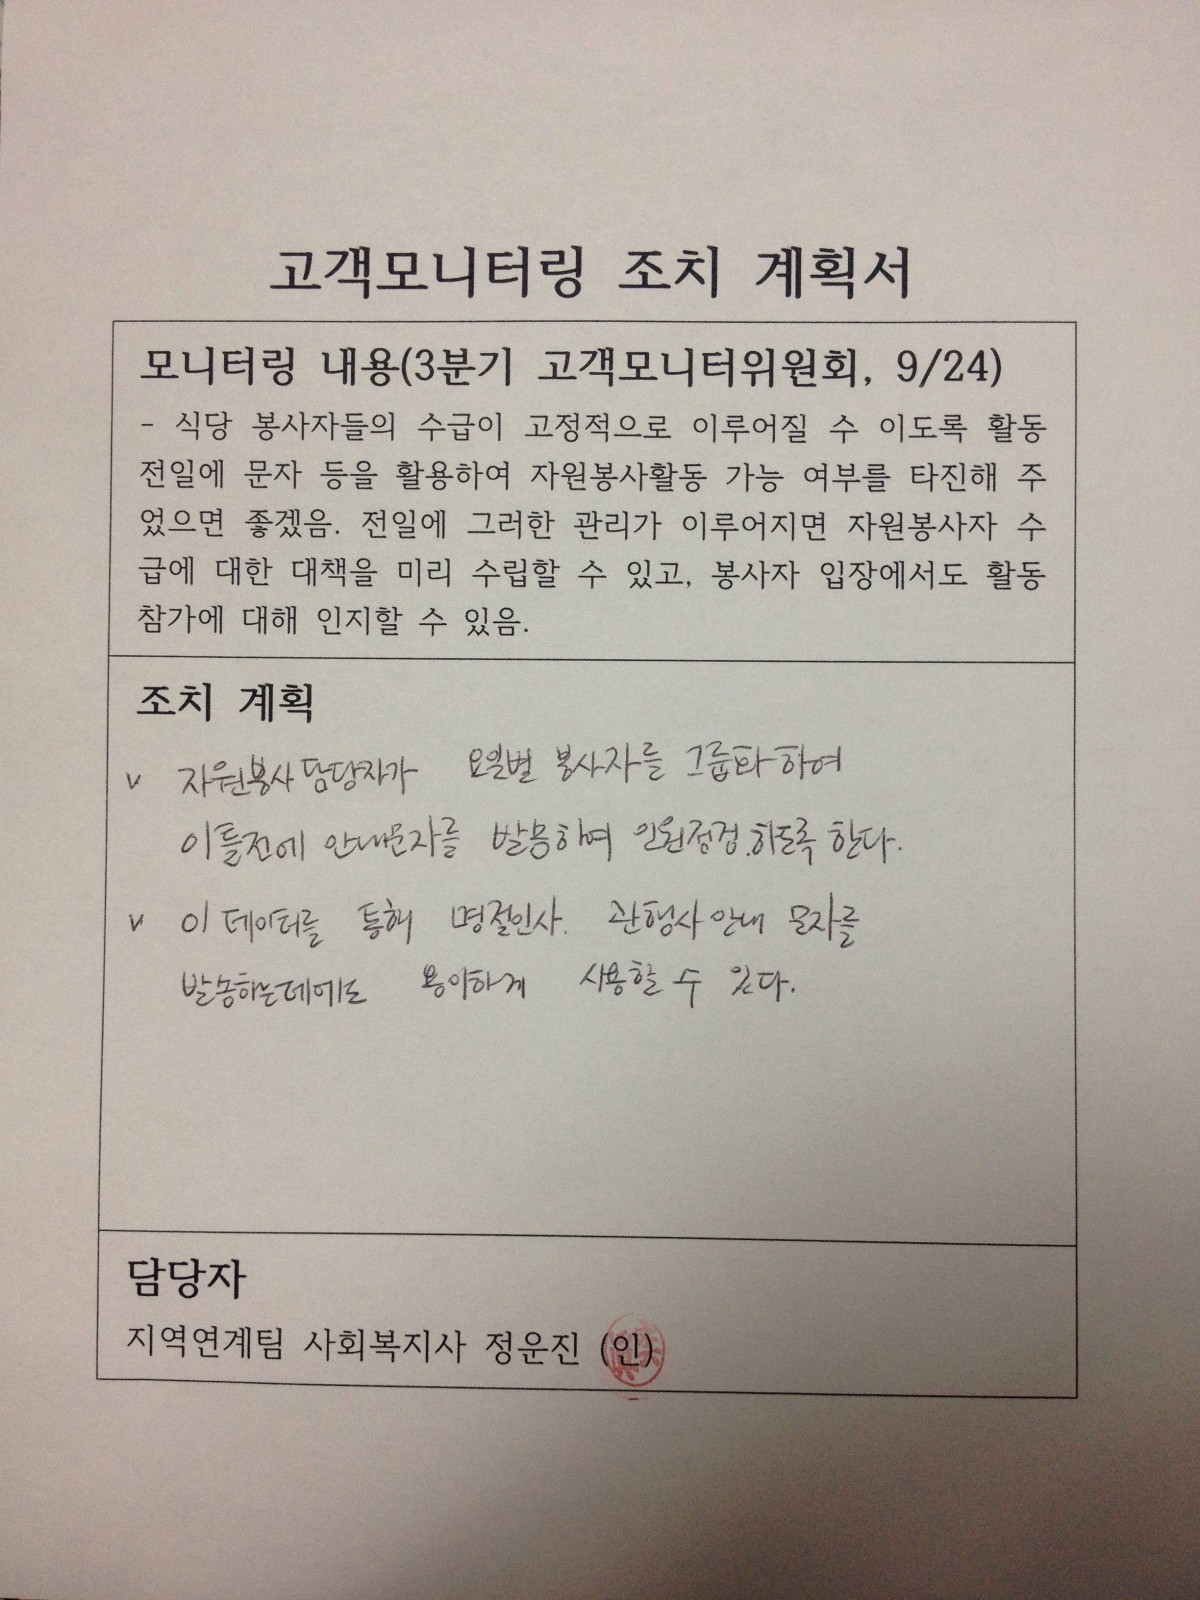 고객모니터링 조치 계획서
모니터링 내용(3분기 고객모니터위원회, 9/24)
- 식당 봉사자들의 수급이 고정적으로 이루어질 수 이도록 활동
전일에 문자 등을 활용하여 자원봉사활동 가능 여부를 타진해 주
었으면 좋겠음. 전일에 그러한 관리가 이루어지면 자원봉사자 수
급에 대한 대책을 미리 수립할 수 있고, 봉사자 입장에서도 활동
참가에 대해 인지할 수 있음.
조치 계획
v 자원봉사 담당자가 요일별 봉사자를 그룹화 하여
이틀전에 안내문자를 발송하여 인원점검.하도록 한다.
v 이 데이터를 통해 명절인사. 관행사 안내 문자를
발송하는데에도 용이하게 사용할 수 있다.
담당자
지역연계팀 사회복지사 정운진 (인)